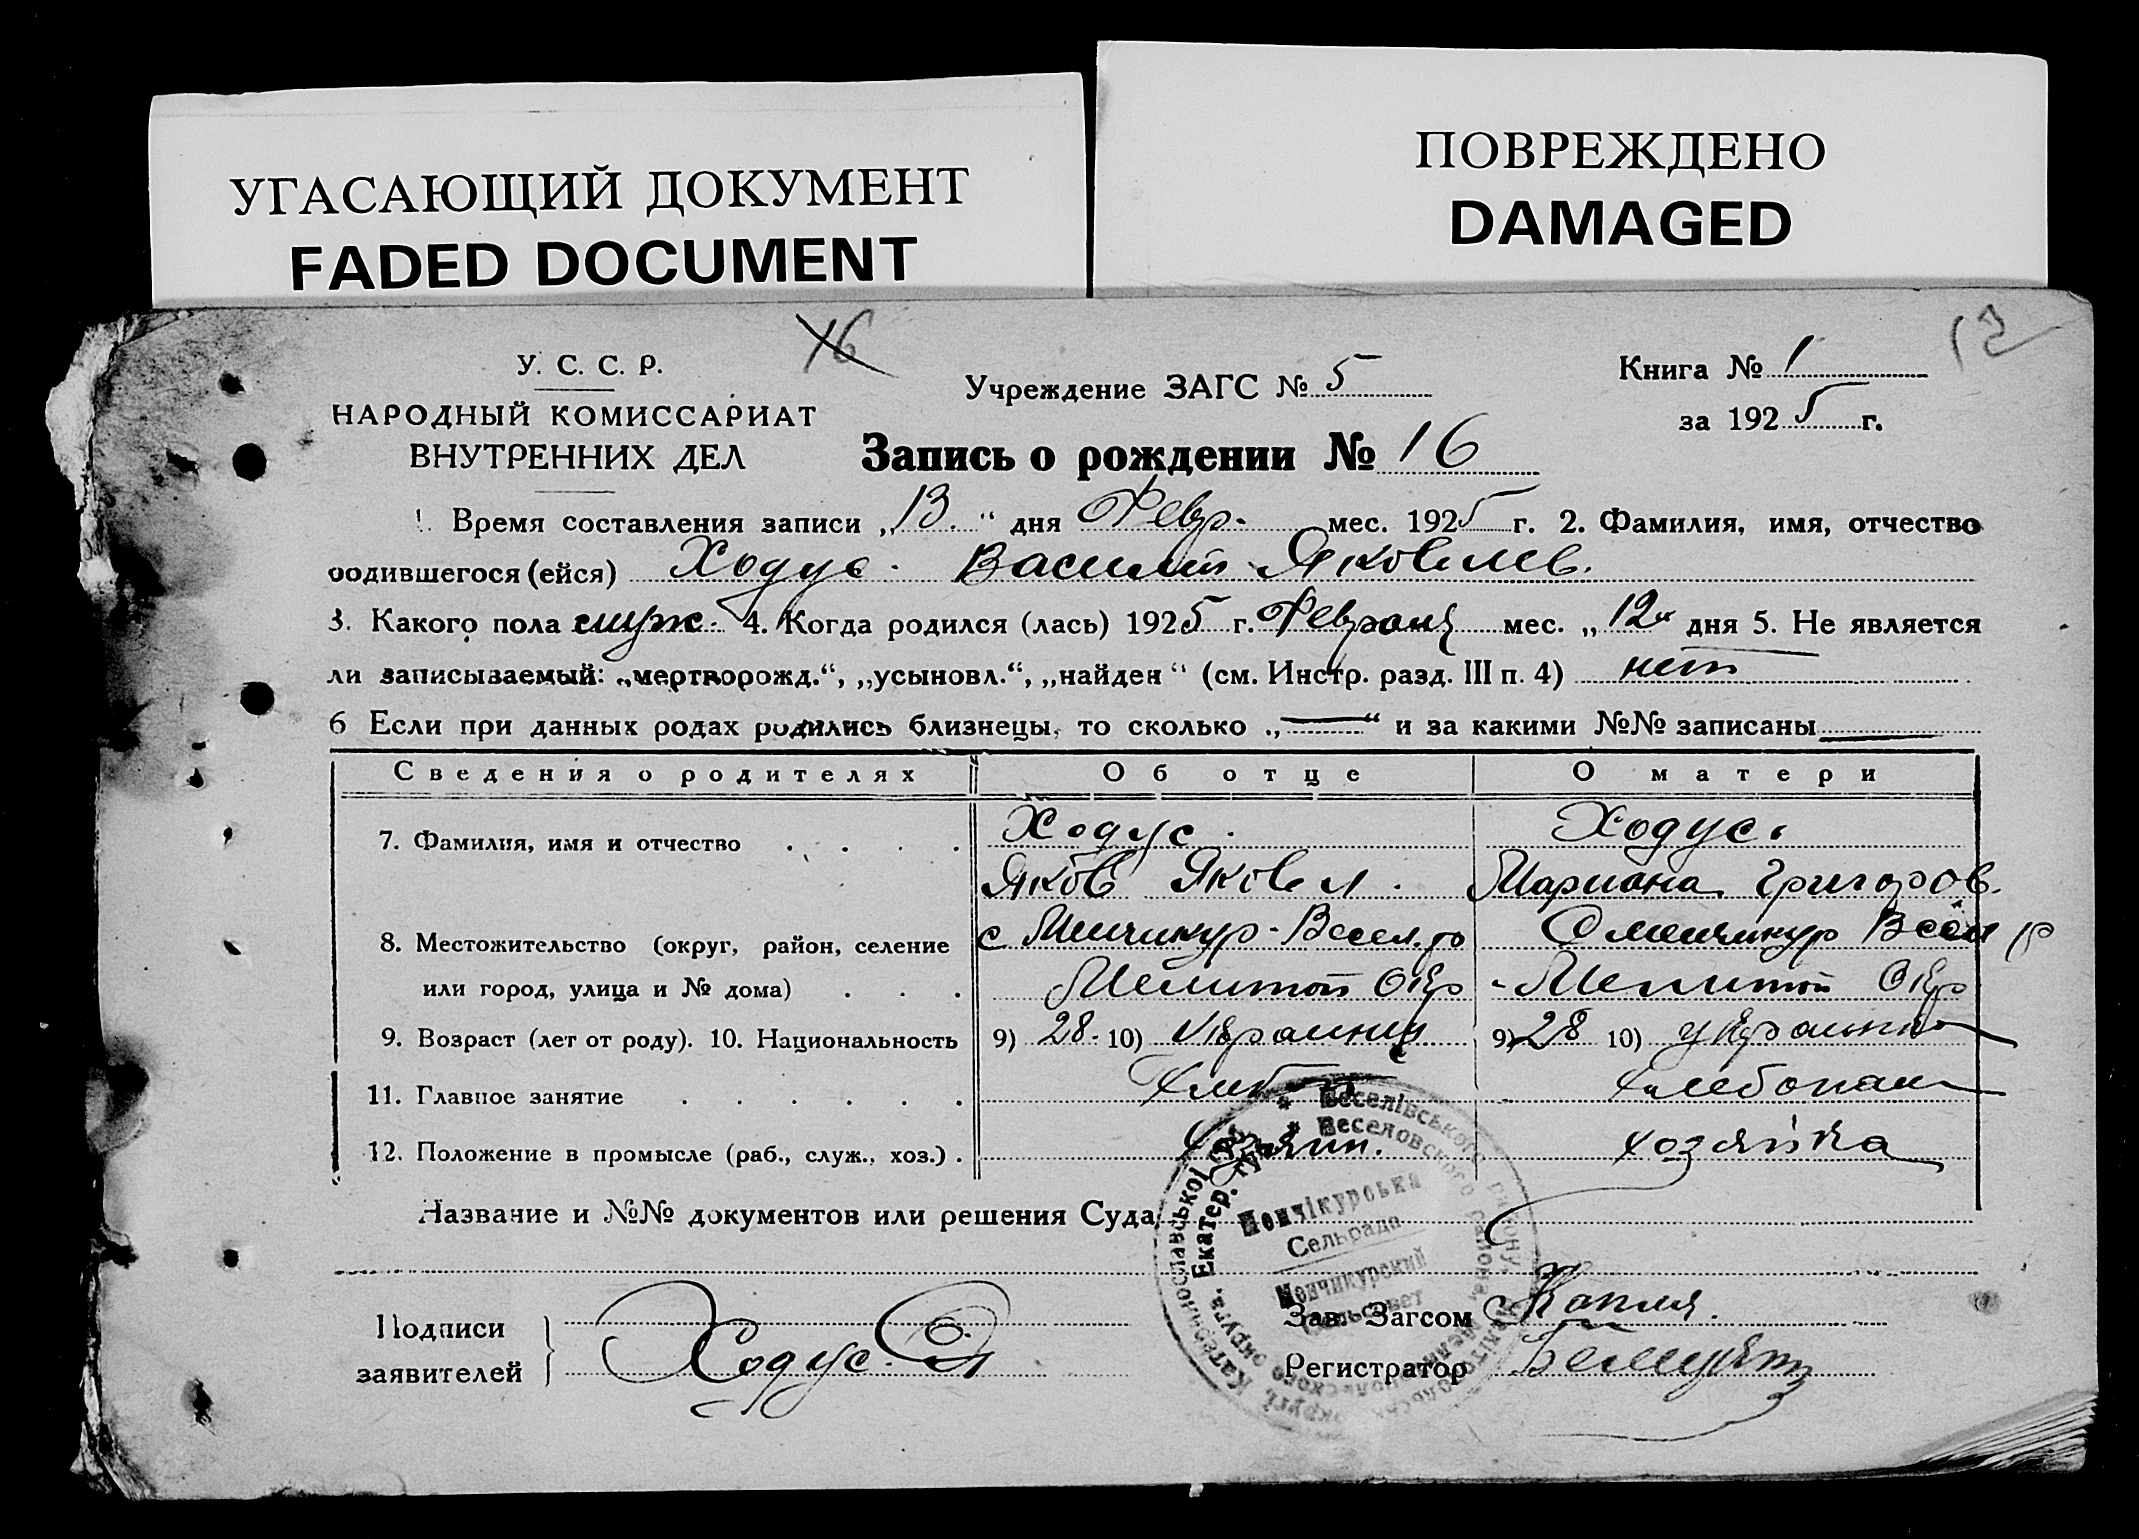 УГАСАЮЩИЙ ДОКУМЕНТ
FADED DOCUMENT
ПОВРЕЖДЕНО
DAMAGED
16
У. С. С. Р.
НАРОДНЫЙ КОМИССАРИАТ
ВНУТРЕННИХ ДЕЛ
Учреждение ЗАГС № 5
Книга № 1
за 1925 г.
Запись о рождении № 16
1. Время составления записи „13.“ дня Февр. мес. 1925 г. 2. Фамилия, имя, отчество
родившегося (ейся) Ходус. Василий Яковлев.
3. Какого пола муж. 4. Когда родился (лась) 1925 г. Февраля мес. „12“ дня 5. Не является
ли записываемый: „мертворожд.“, „усыновл.“, „найден“ (см. Инстр. разд. III п. 4) нет
6 Если при данных родах родились близнецы, то сколько „—“ и за какими №№ записаны —
Сведения о родителях Об отце О матери
7. Фамилия, имя и отчество Ходус. Ходус.
Яков Яковл. Мариана Григоров.
8. Местожительство (округ, район, селение с Менчикур - Весел. р С Менчикур Весел р
или город, улица и № дома) Мелитоп Окр Мелитоп Окр
9. Возраст (лет от роду). 10. Национальность 9) 28. 10) Украинец 9) 28 10) украинка
11. Главное занятие
12. Положение в промысле (раб., служ., хоз.) хозяин. хозяйка
Название и №№ документов или решения Суда
Веселівського району
Веселовского района
Катеринославської
Екатер.
Менчікурська
Сельрада
Менчикурский
Сельсовет
Подписи
заявителей
Ходус. Я
Зав. Загсом Капля.
Регистратор